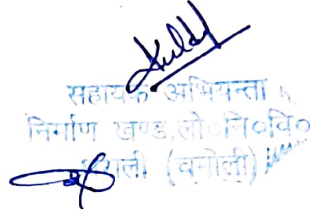 सहायक अभियन्ता
निर्माण खण्ड,लो०नि०वि०
(चमोली)